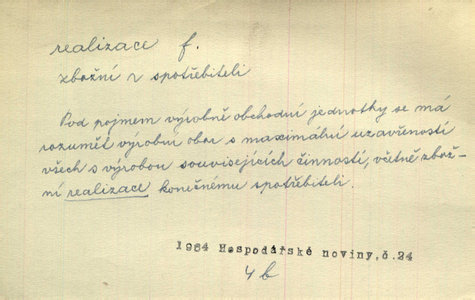 realizace f.
zbožní z spotřebiteli
Pod pojmem výrobně obchodní jednotky se má
rozumět výrobní obor s maximální uzavřeností
všech s výrobou souvisejících činností, včetně zbož-
ní realizace konečnému spotřebiteli.
1964 Hospodářské noviny,č.24
4b